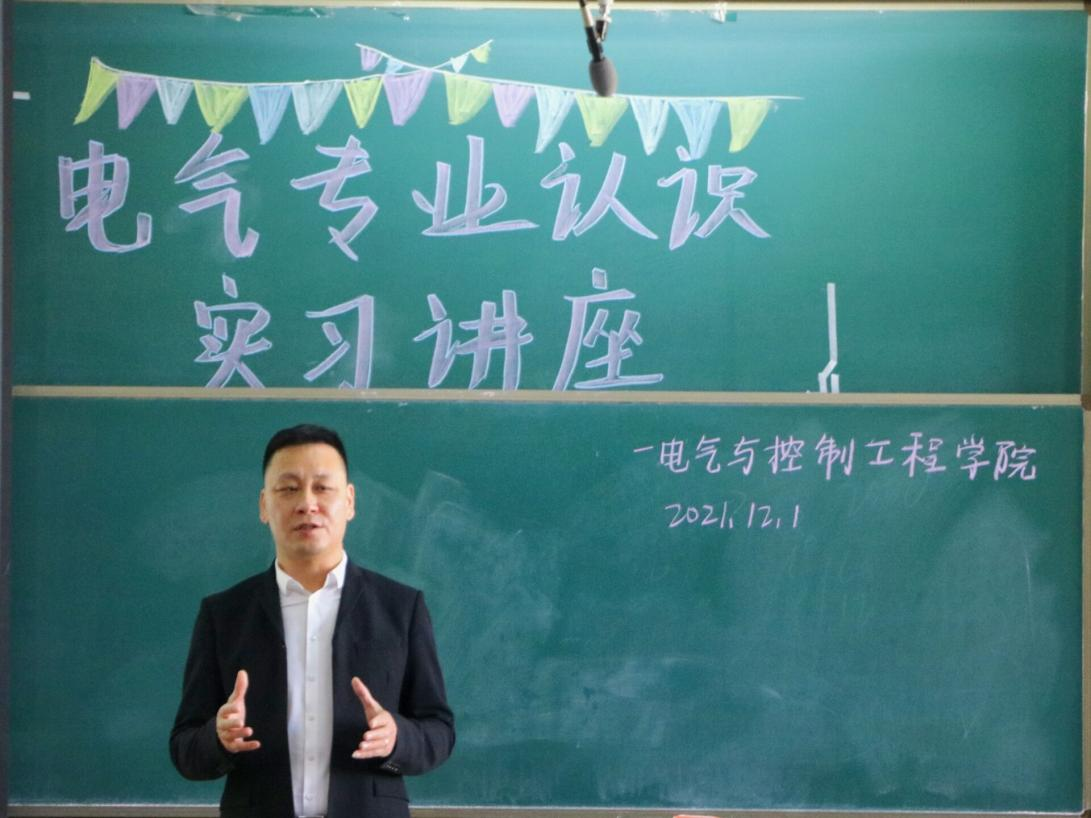 电气专业认识
实习讲座
一电气与控制工程学院
2021.12.1